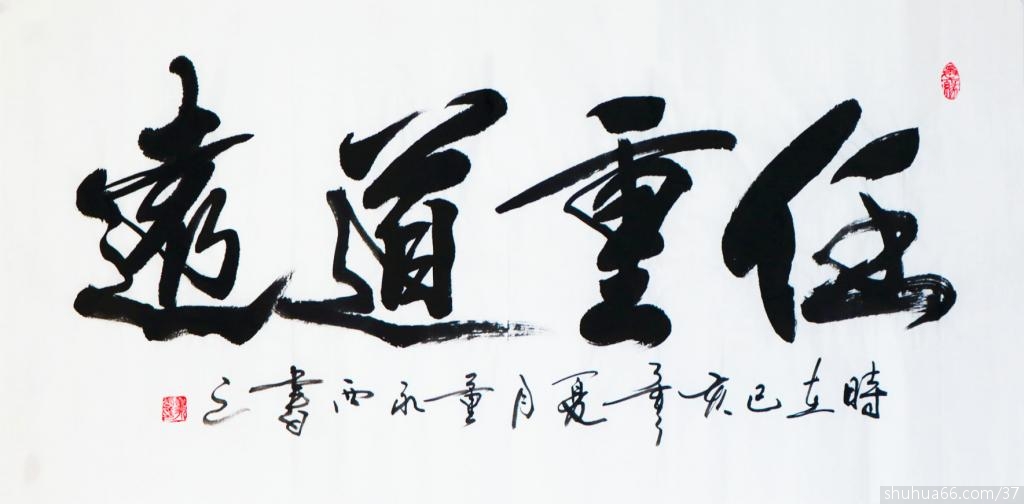 任重道遠
時在己亥夏月董永西書之
shuhua66.com/37